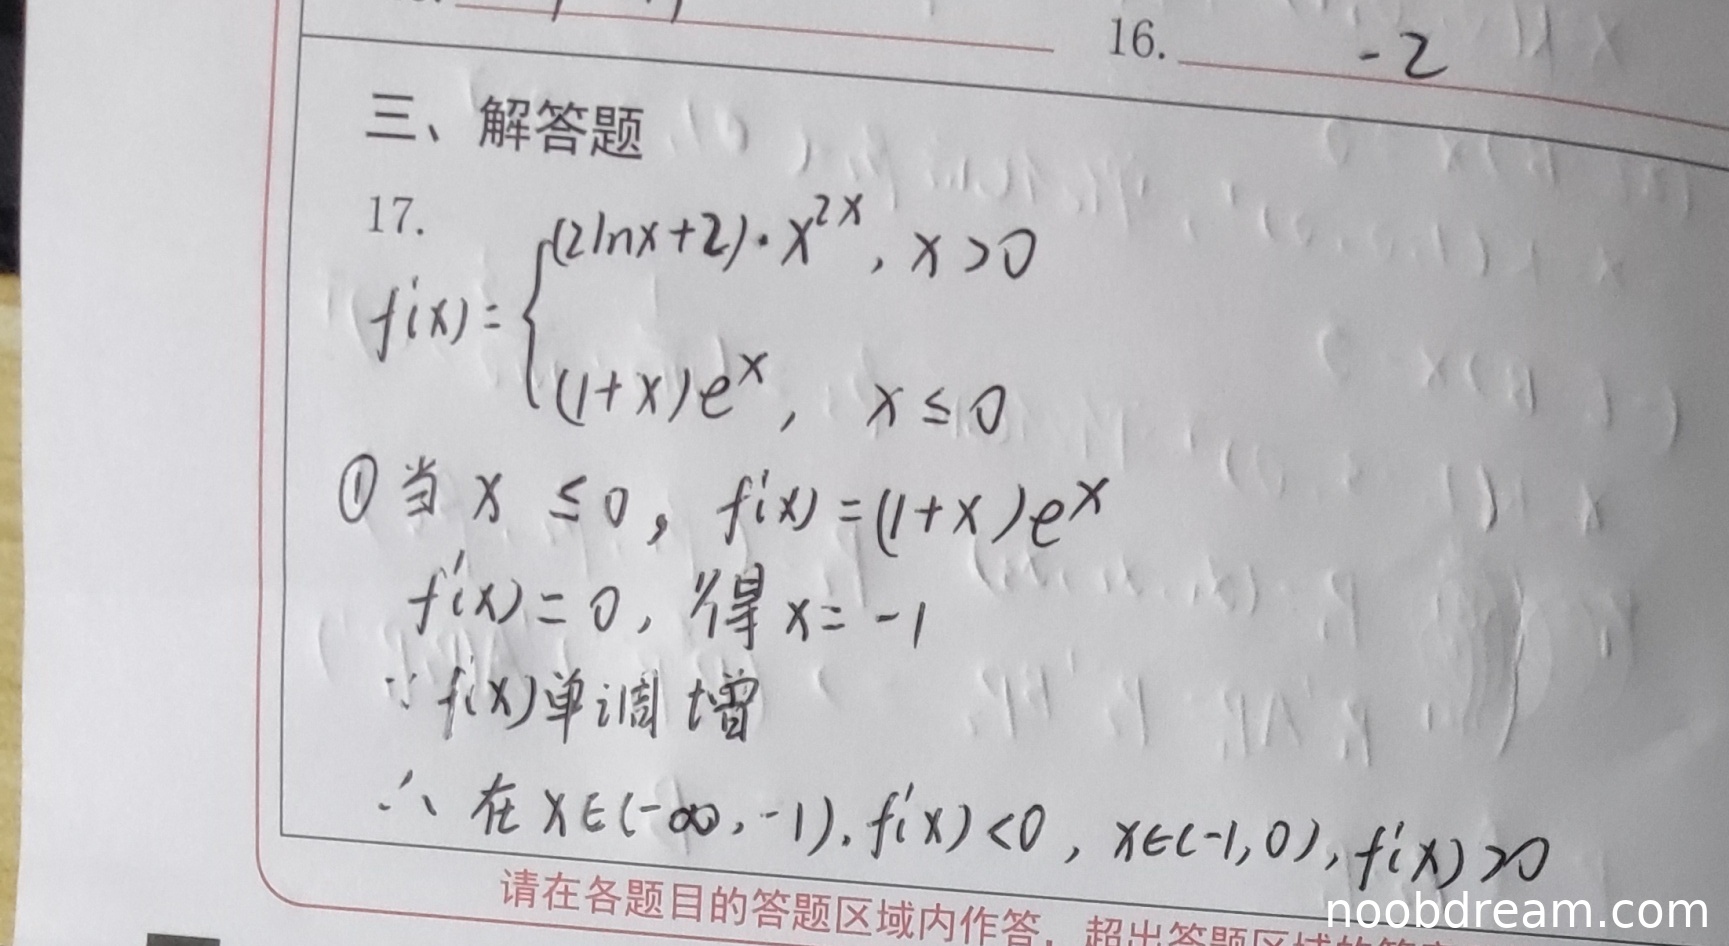 16. -2
三、解答题
17.
f'(x)= { (2lnx+2)·x^{2x}, x>0
(1+x)e^x, x≤0
①当 x ≤0, f'(x)=(1+x)e^x
f'(x)=0, 得 x=-1
∵ f'(x)单调增
∴ 在 x∈(-∞,-1), f'(x)<0, x∈(-1,0), f'(x)>0
请在各题目的答题区域内作答，超出答题区域的答案
noobdream.com